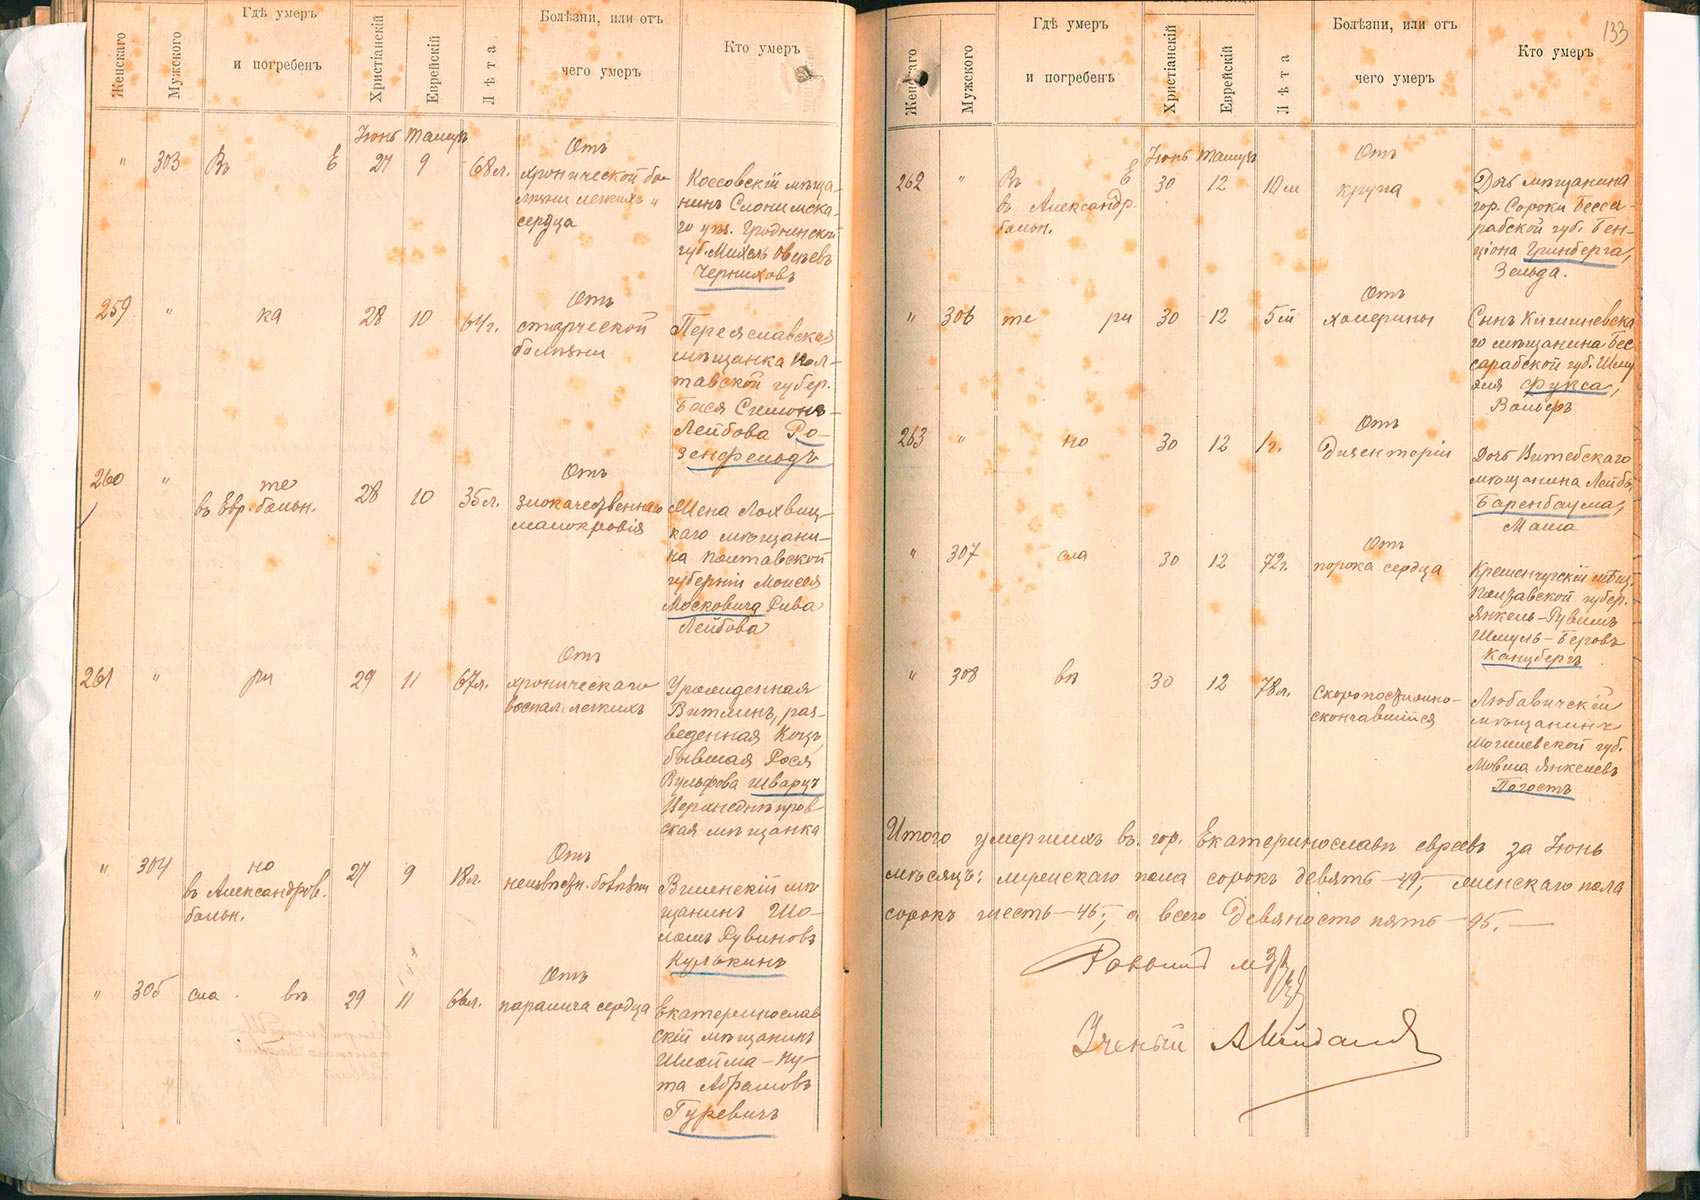 Женскаго
Мужского
Гдѣ умеръ
и погребенъ
Христіанскій
Еврейскій
Лѣта
Болѣзни, или отъ
чего умеръ
Кто умеръ
Іюнь Тамузъ
" 303 Въ Е 27 9 68л.
Отъ
хронической бо-
лѣзни легкихъ и
сердца
Коссовскій мѣща-
нинъ Слонимска-
го уѣз. Гродненской
губ. Михель Овсѣевъ
Черниховъ
259 " ка 28 10 64г.
Отъ
старческой
болѣзни
Переяславская
мѣщанка Пол-
тавской губер.
Бася Симонъ-
Лейбова Ро-
зенфельдъ
260 " те
въ Евр. больн.
28 10 35л.
Отъ
злокачественнаго
малокровія
Жена Лохвиц-
каго мѣщани-
на Полтавской
губерніи Моисея
Московича Рива
Лейбова
261 " ри 29 11 67л.
Отъ
хроническаго
воспал. легкихъ
Урожденная
Витлинъ, раз-
веденная Коцъ,
бывшая Рося
Вульфова Шварцъ
Верхнеднѣпров-
ская мѣщанка
" 304 но
въ Александров.
больн.
27 9 18л.
Отъ
неизвѣстн. болѣзни
Виленскій мѣ-
щанинъ Шо-
ломъ Рувиновъ
Кулькинъ
" 305 сла въ 29 11 66л.
Отъ
паралича сердца
Екатеринослав
скій мѣщанинъ
Шлойма-Ну-
та Абрамовъ
Гуревичъ
133
Женскаго
Мужского
Гдѣ умеръ
и погребенъ
Христіанскій
Еврейскій
Лѣта
Болѣзни, или отъ
чего умеръ
Кто умеръ
Іюнь Тамузъ
262 " Въ Е
въ Александр.
больн.
30 12 10м
Отъ
крупа
Дочь мѣщанина
гор. Сороки Бесса-
рабской губ. Бен-
ціона Гринберга,
Зельда.
" 306 те ри 30 12 5м
Отъ
холерины
Сынъ Кишиневска
го мѣщанина Бес
сарабской губ. Шму
эля Фукса,
Вольфъ
263 " но 30 12 1г.
Отъ
дизентеріи
Дочь Витебскаго
мѣщанина Лейбъ
Баренбаума,
Маша
" 307 сла 30 12 72г.
Отъ
порока сердца
Кременчугскій мѣщ.
Полтавской губер.
Янкель-Рувимъ
Шмуль-Беровъ
Канцбергъ
" 308 въ 30 12 78л.
Скоропостижно-
скончавшійся
Любавичскій
мѣщанинъ
Могилевской губ.
Мовша Янкелевъ
Погостъ
Итого умершихъ въ гор. Екатеринославѣ евреевъ за Іюнь
мѣсяцъ: мужскаго пола сорокъ девять-49, женскаго пола
сорокъ шесть-46, а всего девяносто пять-95.
Раввинъ
Ученый